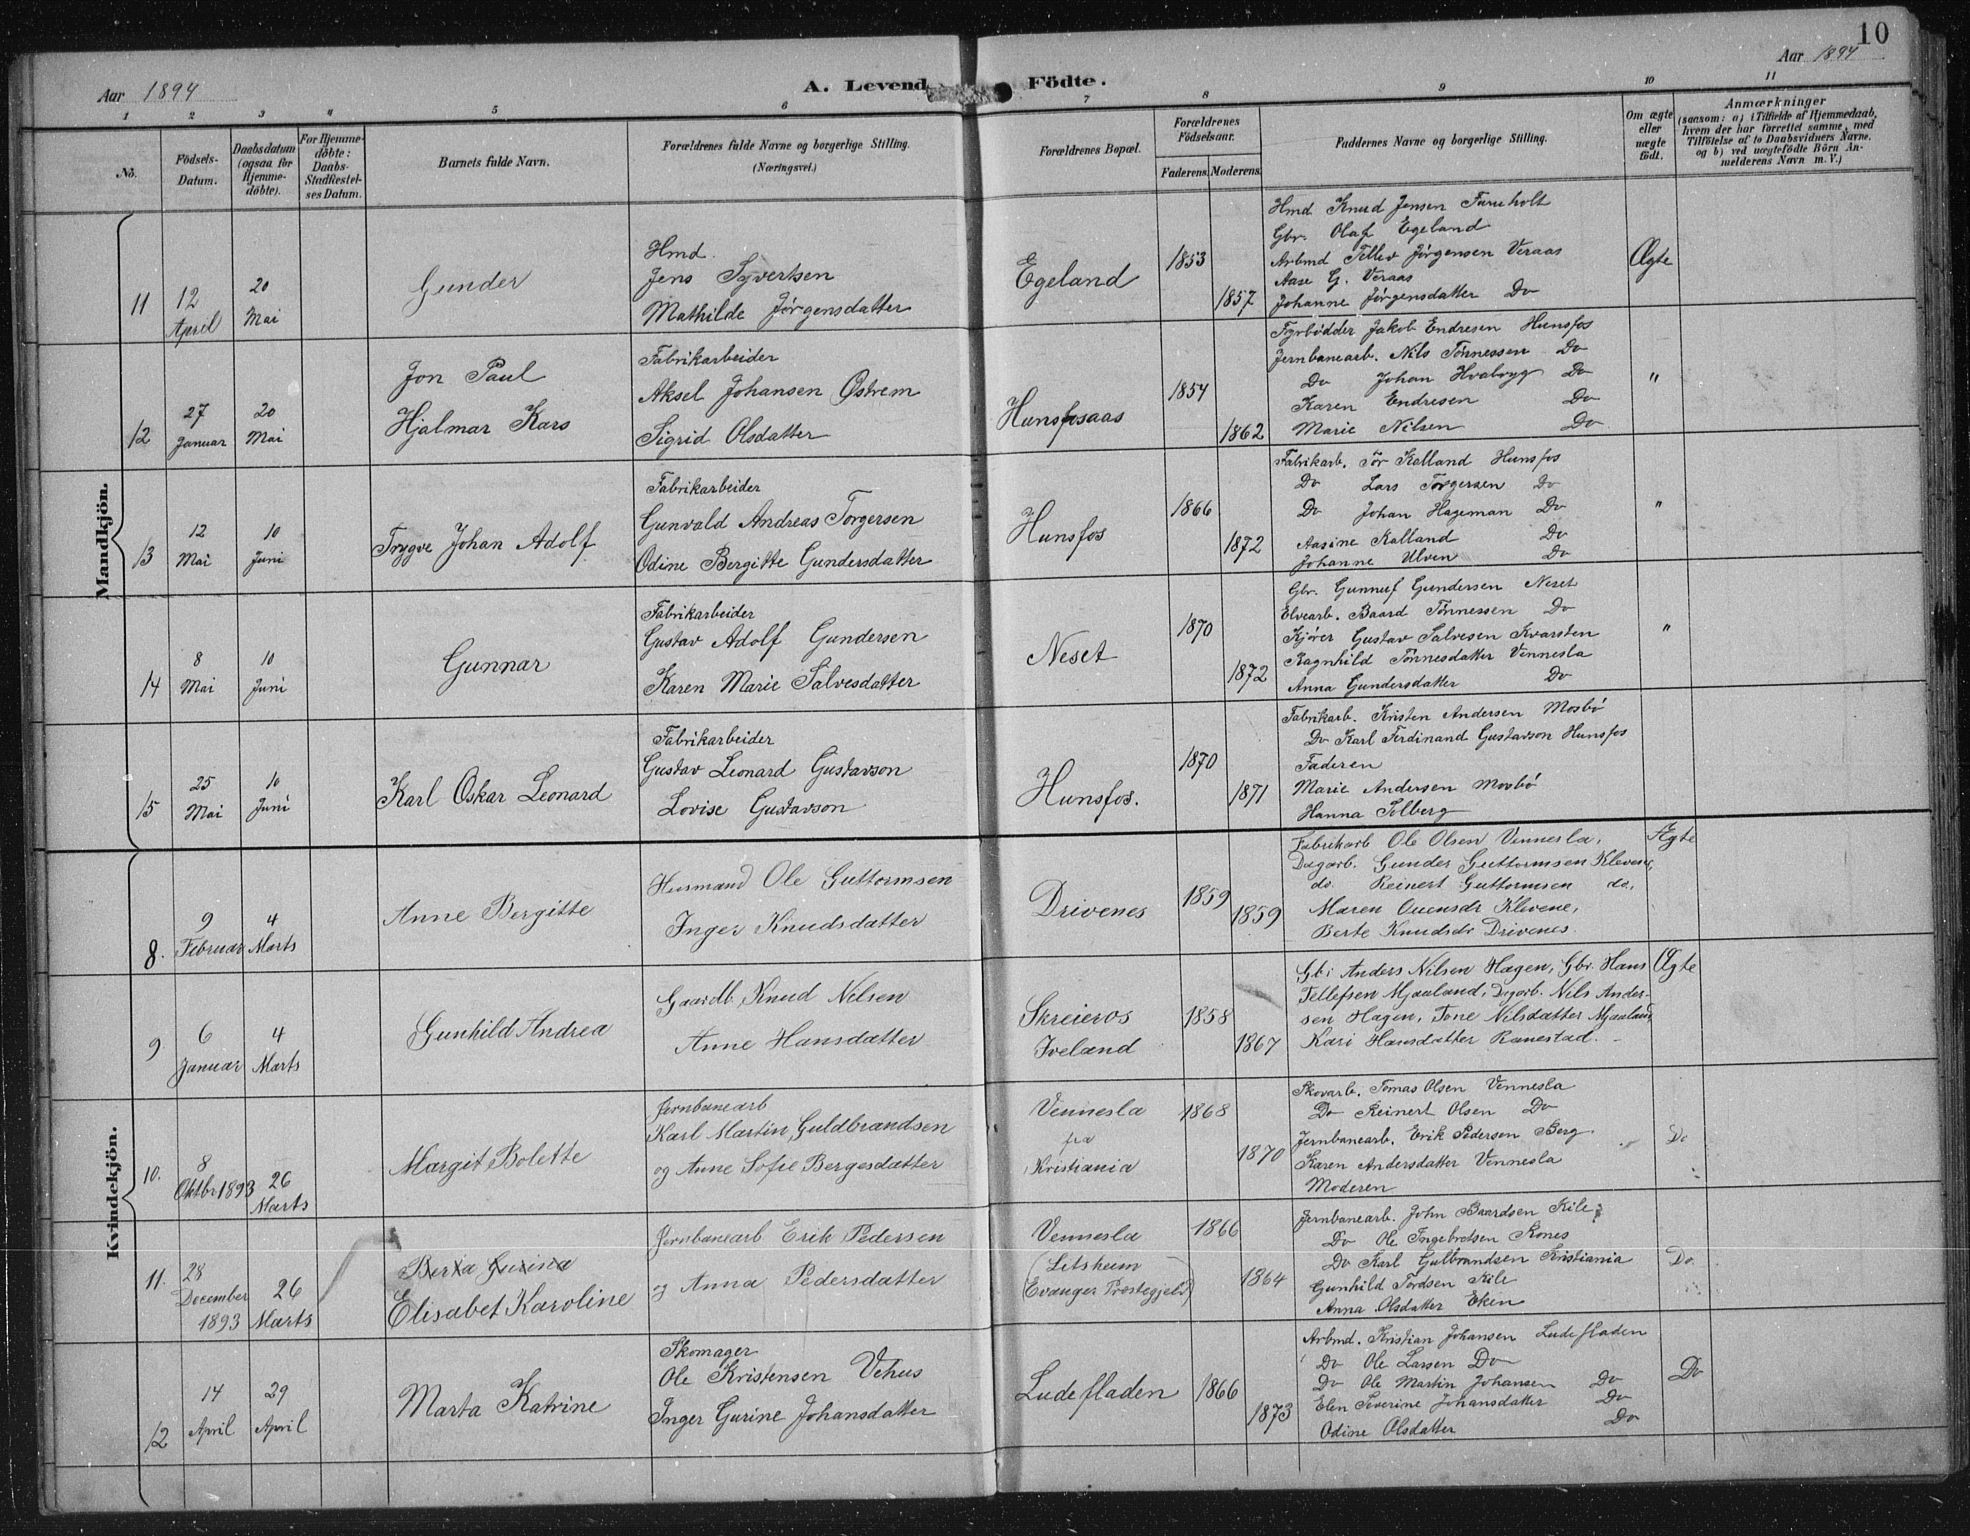 10
Aar 1894
A. Levend Födte.
Aar 1894
1 2 3 4 5 6 7 8 9 10 11
No.
Födsels-
Datum.
Daabsdatum
(ogsaa for
Hjemme-
döbte).
For Hjemme-
döbte:
Daabs-
Stadfæstel-
ses Datum.
Barnets fulde Navn.
Forældrenes fulde Navne og borgerlige Stilling.
(Næringsvei.)
Forældrenes Bopæl.
Forældrenes
Födselsaar.
Faderens. Moderens.
Faddernes Navne og borgerlige Stilling.
Om ægte
eller
uægte
födt.
Anmærkninger
(saasom: a) i Tilfælde af Hjemmedaab,
hvem der har forrettet samme, med
Tilföielse af to Daabsvidners Navne,
og b) ved uægtefödte Börn An-
melderens Navn m. V.)
Mandkjön.
11
12
April
20
Mai
Gunder
Hmd.
Jens Syvertsen
Mathilde Jørgensdatter
Egeland
1853
1857
Hmd Knud Jensen Furuholt
Gbr. Olaf Egeland
Arbmd Tellev Jørgensen Veraas
Aase G. Veraas
Johanne Jørgensdatter Do
Ægte
12
27
Januar
20
Mai
Jon Paul
Hjalmar Kars
Fabrikarbeider
Aksel Johansen Østrem
Sigrid Olsdatter
Hunsfosaas
1854
1862
Fyrbødder Jakob Endresen Hunsfos
Jernbanearb. Nils Tønnessen Do
Do Johan Do
Karen Endresen Do
Marie Nilsen Do
"
13
12
Mai
10
Juni
Trygve Johan Adolf
Fabrikarbeider
Gunvald Andreas Torgersen
Odine Bergitte Gundersdatter
Hunsfos
1866
1872
Fabrikarb. Tor Kalland Hunsfos
Do Lars Torgersen Do
Do Johan Hageman Do
Aasine Kalland Do
Johanne Ulven Do
"
14
8
Mai
10
Juni
Gunnar
Fabrikarbeider
Gustav Adolf Gundersen
Karen Marie Salvesdatter
Neset
1870
1872
Gbr. Gunnuf Gundersen Neset
Elvearb. Baard Tønnessen Do
Kjører Gustav Salvesen Kvarsten
Ragnhild Tønnesdatter Vennesla
Anna Gundersdatter Do
"
15
25
Mai
10
Juni
Karl Oskar Leonard
Fabrikarbeider
Gustav Leonard Gustavson
Lovise Gustavson
Hunsfos.
1870
1871
Fabrikarb. Kristen Andersen Mosbø
Do Karl Ferdinand Gustavson Hunsfos
Faderen
Marie Andersen Mosbø
Hanna Solberg
Kvindekjön.
8.
9
Februar
4
Marts
Anne Bergitte
Husmand Ole Guttormsen
Inger Knudsdatter
Drivenes
1859
1859
Fabrikarb Ole Olsen Vennesla,
Dagarb. Gunder Guttormsen Klevene,
do. Reinert Guttormsen do,
Maren Ouensdr Klevene,
Berte Knudsdr Drivenes.
Ægte
9.
6
Januar
4
Marts
Gunhild Andrea
Gaardb. Knud Nilsen
Anne Hansdatter
Skreieros
Iveland
1858
1867
Gbr Anders Nilsen Hagen, Gbr. Hans
Tellefsen Mjaaland, Dagarb. Nils Ander-
sen Hagen, Tone Nilsdatter Mjaaland
Kari Hansdatter Ranestad.
Ægte
10.
8
Oktbr 1893
26
Marts
Margit Bolette
Jernbanearb
Karl Martin Guldbrandsen
og Anne Sofie Bergesdatter
Vennesla
fra
Kristiania
1868
1870
Skovarb. Tomas Olsen Vennesla
Do Reinert Olsen Do
Jernbanearb. Erik Pedersen Berg
Karen Andersdatter Vennesla
Moderen
Do
11.
28
December
1893
26
Marts
Berta Gurina
Elisabet Karoline
Jernbanearb Erik Pedersen
og Anna Pedersdatter
Vennesla
(Litsheim
Evanger Præstegjeld)
1866
1864
Jernbanearb. John Baardsen Kile
Do Ole Ingebretsen Rones
Do Karl Gulbrandsen Kristiania
Gunhild Tordsen Kile
Anna Olsdatter Ekin
Do.
12
14
April
29
April
Marta Katrine
Skomager
Ole Kristensen Vehus
Inger Gurine Johansdatter
Ludefladen
1866
1873
Arbmd. Kristian Johansen Ludefladen
Do Ole Larsen Do
Do Ole Martin Johansen Do
Elen Severine Johansdatter Do
Odine Olsdatter Do
Do